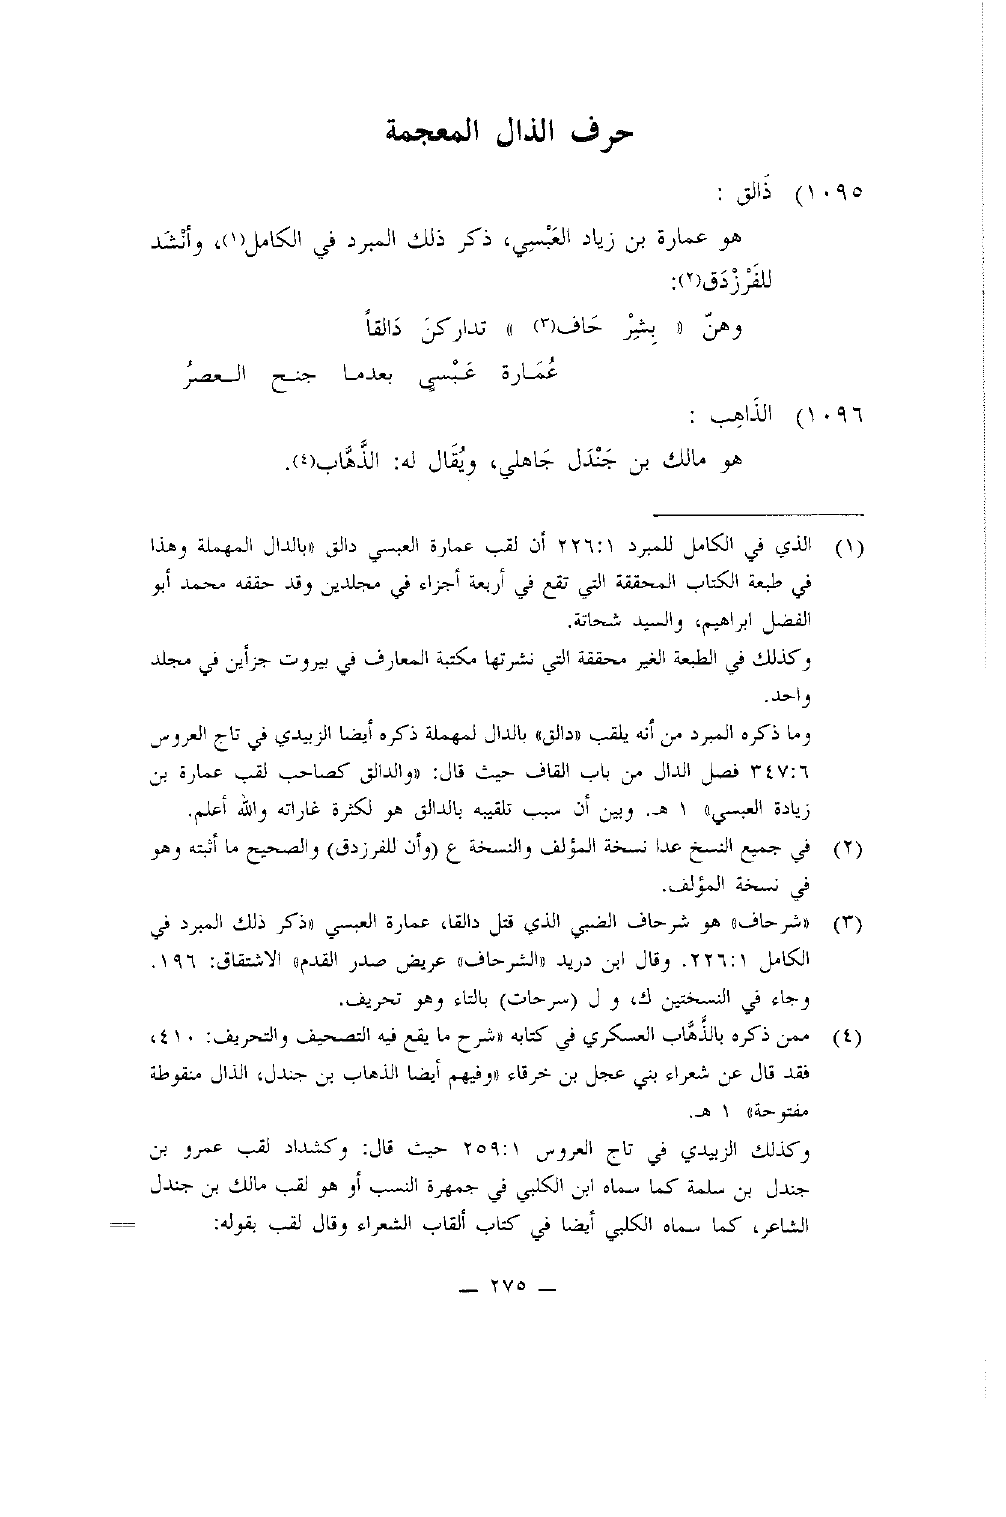 حرف الذال المعجمة
١٠٩٥) ذَالق :
هو عمارة بن زياد العَبْسِي، ذكر ذلك المبرد في الكامل(١)، وأنْشَد
للفَرْزْدَق(٢):
وهنّ « بِشيْر حَاف(٣) » تداركنَ دَالقاً
عُمَارة عَبْسٍي بعدما جنح العصرُ
١٠٩٦) الذَاهِب :
هو مالك بن جَنْدَل جَاهلي، ويُقَال له: الذَّهَّاب(٤).
(١) الذي في الكامل للمبرد ٢٢٦:١ أن لقب عمارة العبسي دالق «بالدال المهملة وهذا
في طبعة الكتاب المحققة التي تقع في أربعة أجزاء في مجلدين وقد حققه محمد أبو
الفضل ابراهيم، والسيد شحاتة.
وكذلك في الطبعة الغير محققة التي نشرتها مكتبة المعارف في بيروت جزأين في مجلد
واحد.
وما ذكره المبرد من أنه يلقب «دالق» بالدال لمهملة ذكره أيضا الزبيدي في تاج العروس
٣٤٧:٦ فصل الدال من باب القاف حيث قال: «والدالق كصاحب لقب عمارة بن
زيادة العبسي» ١ هـ. وبين أن سبب تلقيبه بالدالق هو لكثرة غاراته والله أعلم.
(٢) في جميع النسخ عدا نسخة المؤلف والنسخة ع (وأن للفرزدق) والصحيح ما أثبته وهو
في نسخة المؤلف.
(٣) «شرحاف» هو شرحاف الضبي الذي قتل دالقا، عمارة العبسي «ذكر ذلك المبرد في
الكامل ٢٢٦:١. وقال ابن دريد «الشرحاف» عريض صدر القدم» الاشتقاق: ١٩٦.
وجاء في النسختين ك، و ل (سرحات) بالتاء وهو تحريف.
(٤) ممن ذكره بالذَّهَّاب العسكري في كتابه «شرح ما يقع فيه التصحيف والتحريف: ٤١٠،
فقد قال عن شعراء بني عجل بن خرقاء «وفيهم أيضا الذهاب بن جندل، الذال منقوطة
مفتوحة» ١ هـ.
وكذلك الزبيدي في تاج العروس ٢٥٩:١ حيث قال: وكشداد لقب عمرو بن
جندل بن سلمة كما سماه ابن الكلبي في جمهرة النسب أو هو لقب مالك بن جندل
الشاعر، كما سماه الكلبي أيضا في كتاب ألقاب الشعراء وقال لقب بقوله: ==
— ٢٧٥ —